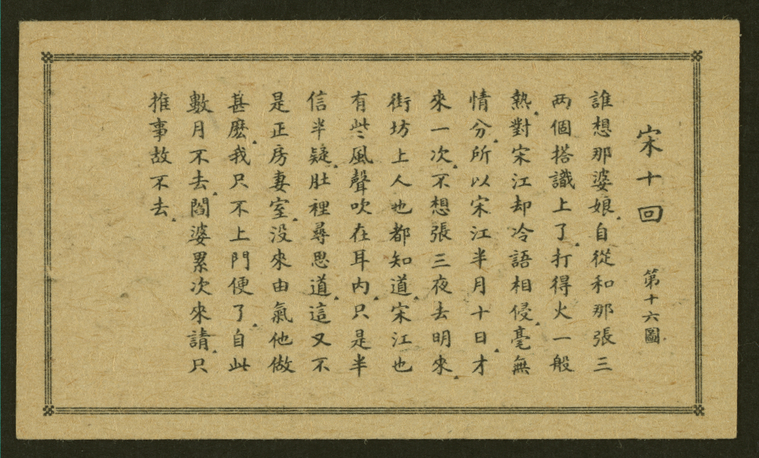 宋十回
第十六圖
誰想那婆娘.自從和那張三
两個搭識上了.打得火一般
熱.對宋江却冷語相侵.毫無
情分.所以宋江半月十日才
來一次.不想張三夜去明來.
街坊上人也都知道.宋江也
有些風聲吹在耳内.只是半
信半疑.肚裡尋思道.這又不
是正房妻室.没來由氣他做
甚麽.我只不上門便了.自此
數月不去.閻婆累次來請.只
推事故不去.